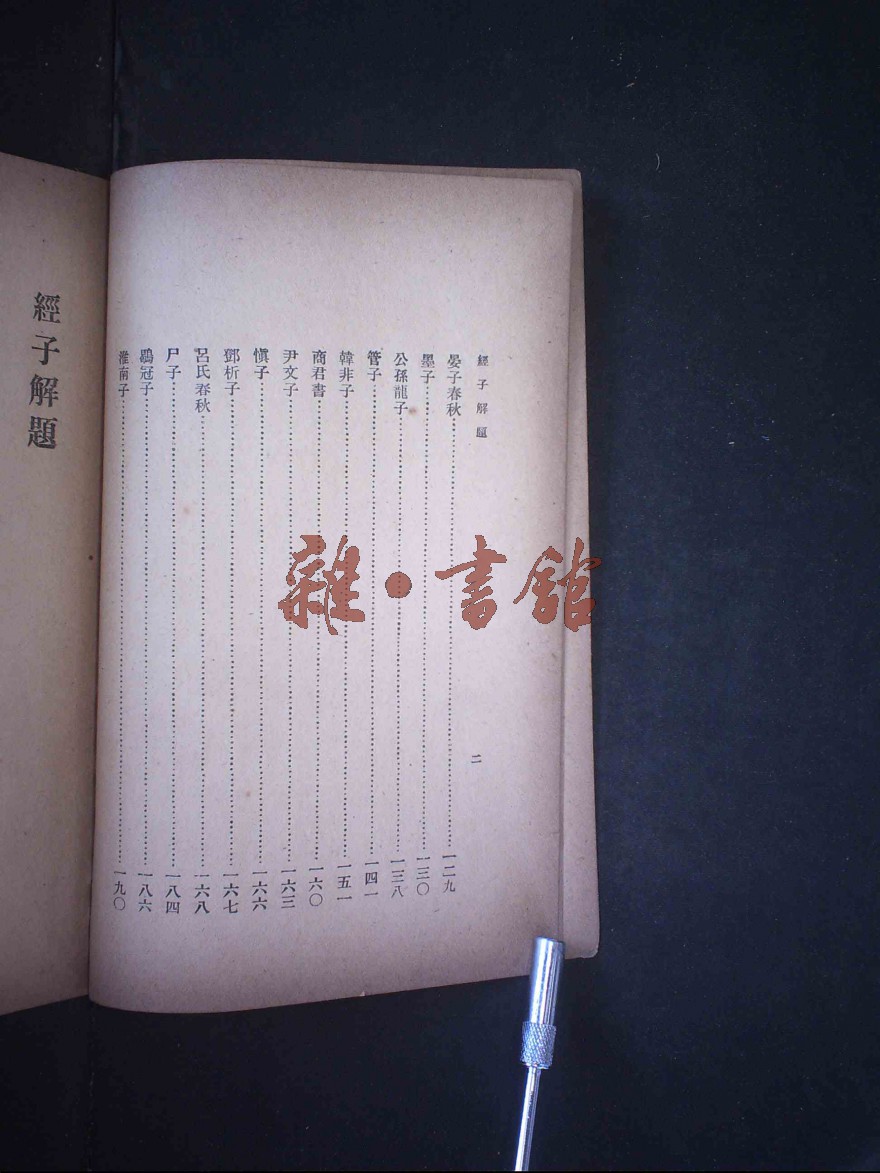 經子解題
二
晏子春秋……一二九
墨子……一三〇
公孫龍子……一三八
管子……一四一
韓非子……一五一
商君書……一六〇
尹文子……一六三
愼子……一六六
鄧析子……一六七
呂氏春秋……一六八
尸子……一八四
鶡冠子……一八六
淮南子……一九〇
經子解題
雜·書館